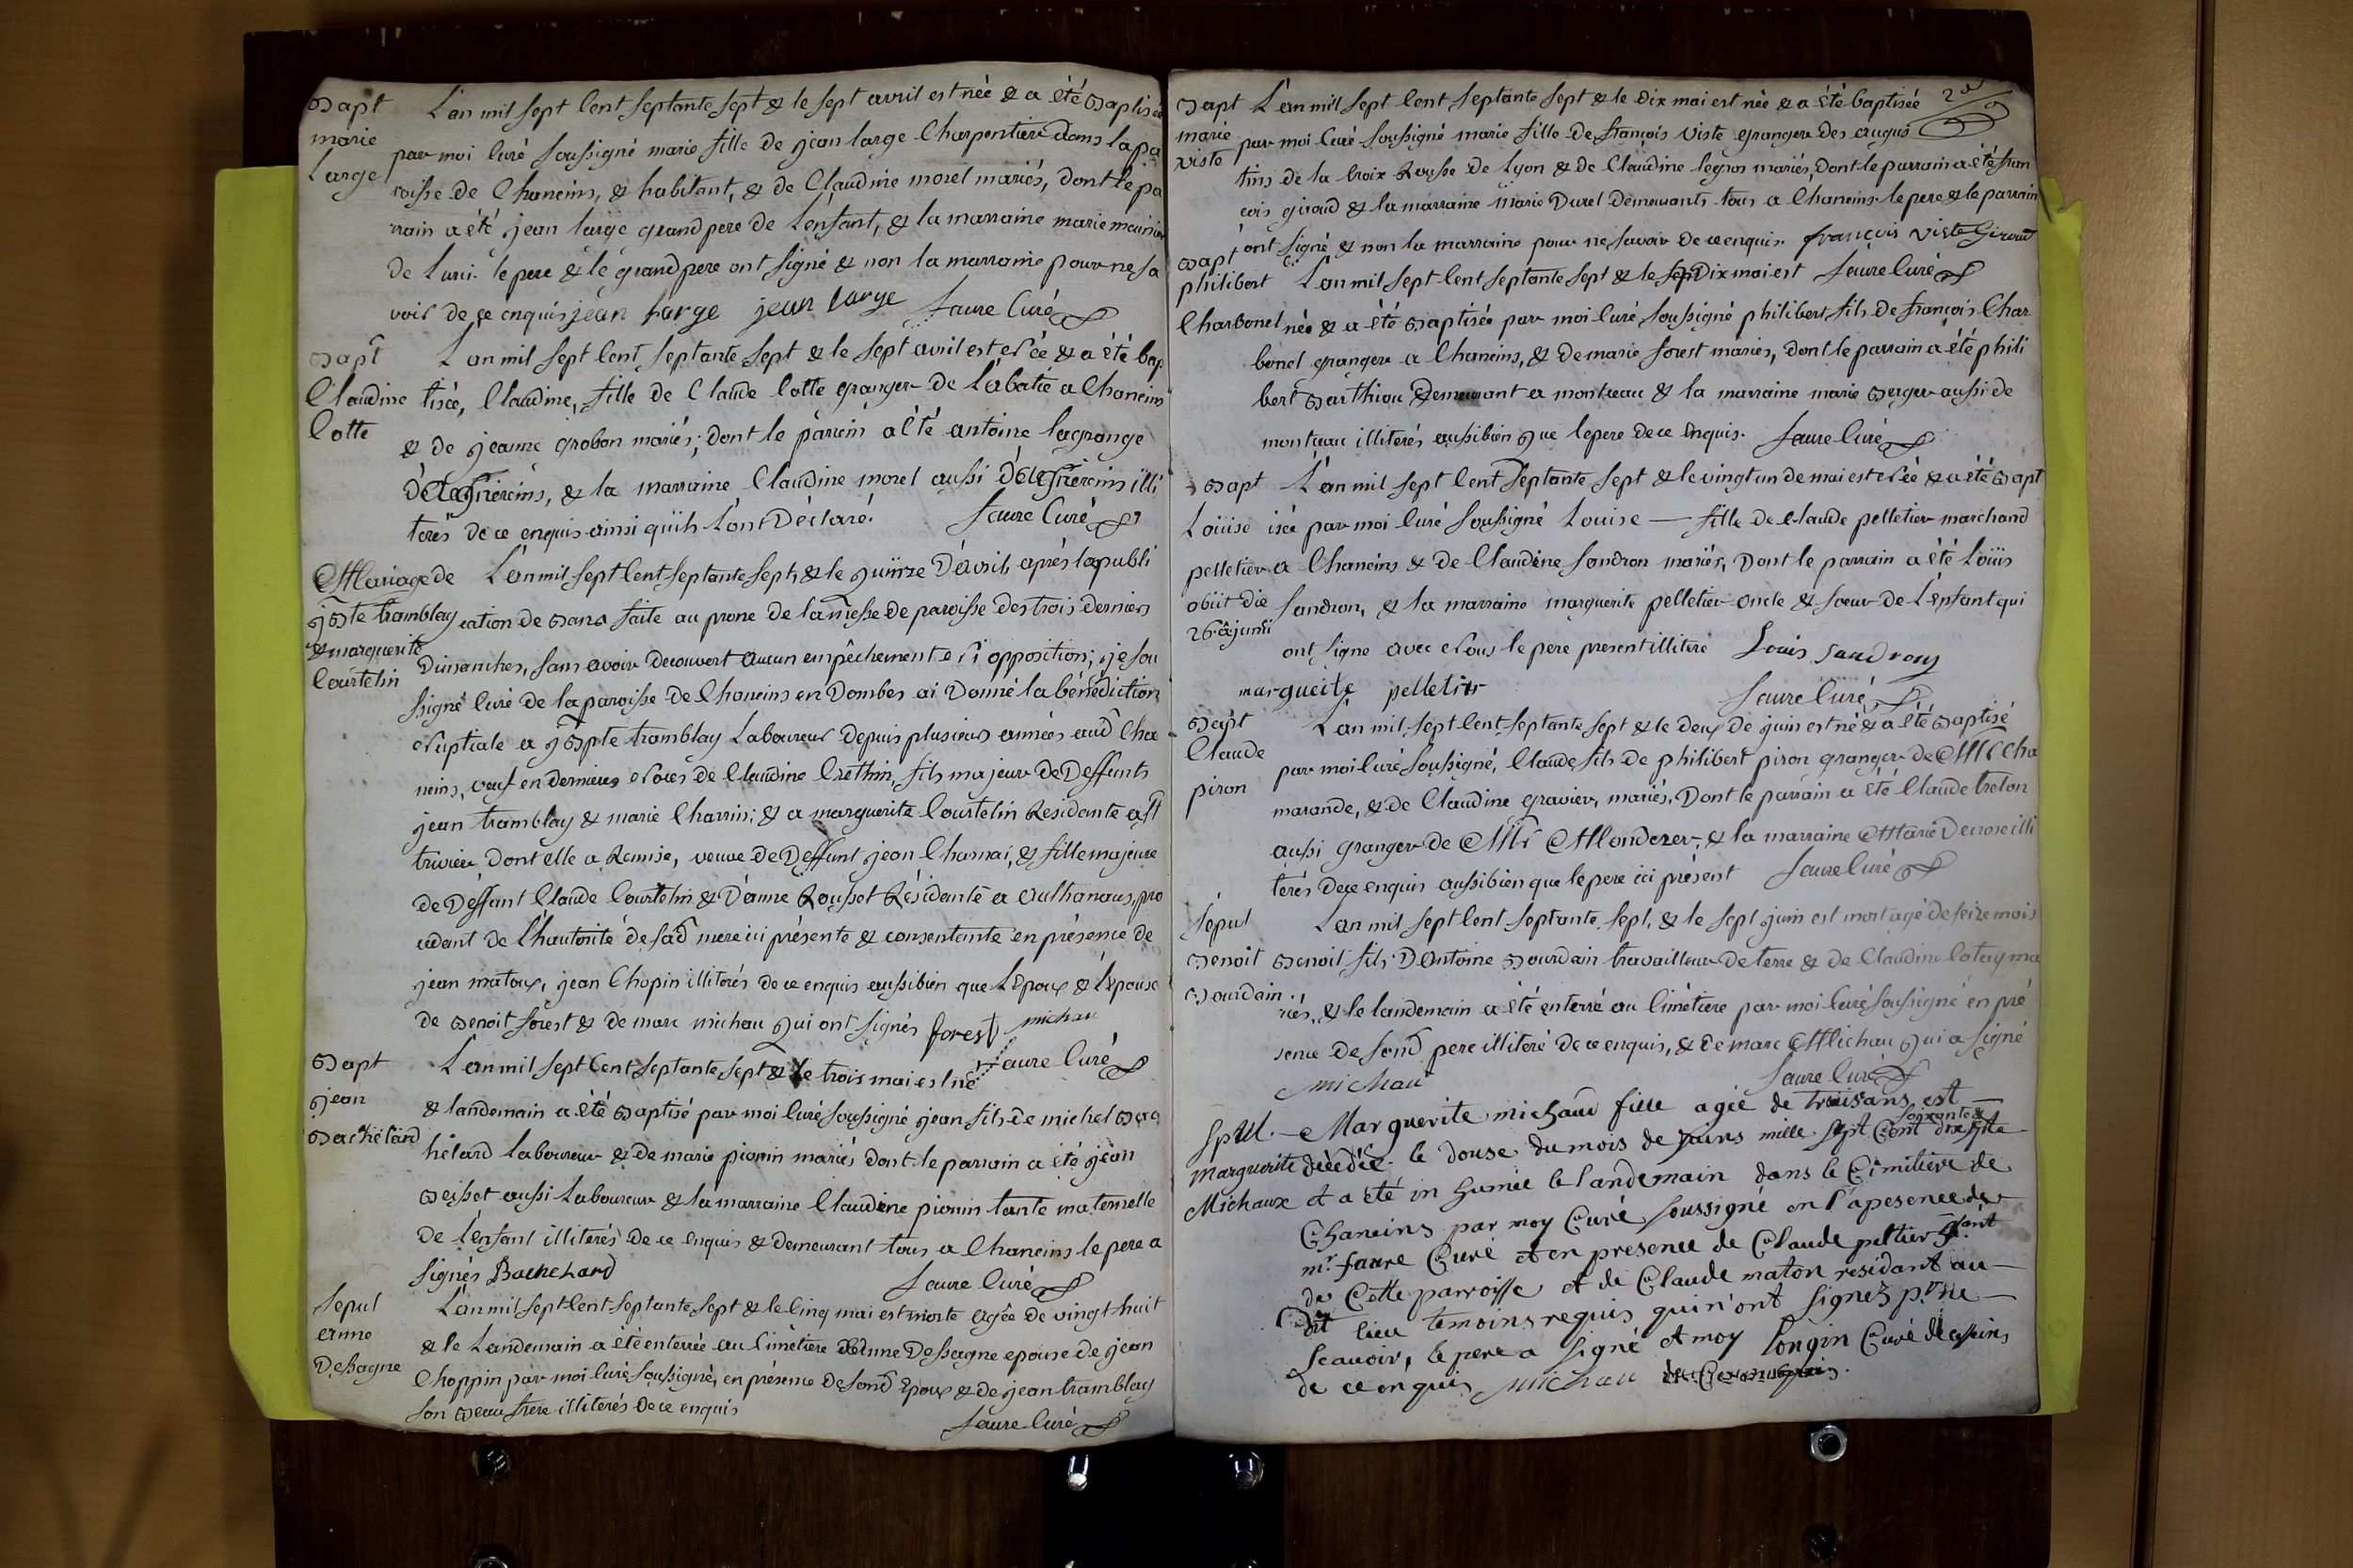 Bapt
marie
Large
L'an mil sept Cent septante sept & le sept avril est née & a été Baptisée
par moi Curé soussigné marie fille de jean large Charpentier dans la pa
roisse de Chaneins, & habitant, & de Claudine morel mariés, dont le pa
rrain a été jean large grand pere de L'enfant, & la marraine marie meunier
de Lurci. le pere & le grand pere ont signé & non la marraine pour ne sa
voir de ce enquis jean large jean large faure Curé
Bapt
Claudine
Cotte
L'an mil sept Cent septante sept & le sept avril est née & a été bap
tisée, Claudine, fille de Claude Cotte granger de L'abatie a Chaneins
& de jeanne grobon mariés; dont le parrein a été antoine lagrange
& la marraine Claudine morel aussi illi
terés de ce enquis ainsi qu'ils L'ont Déclaré. faure Curé
Mariage de
jBte tramblay
& marguerite
Courtelin
L'an mil sept Cent septante sept, & le quinze D'avril après la publi
cation de Bans faite au prone de la messe de paroisse des trois derniers
Dimanches, sans avoir decouvert aucun empêchement ni opposition; je sou
ssigné Curé de la paroisse de Chaneins en Dombes ai Donné la bénédiction
nuptiale a jBpte tramblay Laboureur depuis plusieurs années aud Cha
neins, veuf en dernieres noces de Claudine Crethin, fils majeur de Deffunts
jean tramblay & marie Charrin; & a marguerite Courtelin Residante a St
trivier Dont elle a Remise, veuve de Deffunt jean Charnai, & fille majeure
de Deffunt Claude Courtelin & D'anne Rousset Résidante a pro
cedant de L'hautorité de sad mere ici présente & consentante en présence de
jean matoux, jean Chopin illiterés de ce enquis aussi bien que L'Epoux & l'épouse
de Benoit forest & de marc michau qui ont signés forest michau
faure Curé
Bapt
jean
Bachelard
L'an mil sept Cent septante sept & le trois mai est né
& landemain a été Baptisé par moi Curé soussigné jean fils de michel Bac
hélard Laboureur & de marie pionin mariés dont le parrain a été jean
Beisset aussi Laboureur & la marraine Claudine pionin tante maternelle
de L'enfant illiterés de ce enquis & demeurant tous a Chaneins le pere a
signés Bachelard faure Curé
Sepul
anne
Dessagne
L'an mil sept Cent septante sept & le Cinq mai est morte agée de vingt huit
& le Landemain a été enterrée au Cimétiere anne Dessagne epouse de jean
Choppin par moi Curé soussigné, en présence de sond Epoux & de jean tramblay
son Beau frere illiterés de ce enquis
faure Curé
Bapt
marie
viste
L'an mil sept Cent septante sept & le Dix mai est née & a été baptisée
par moi Curé soussigné marie fille de françois viste granger des augus
tins de la Croix Rousse de Lyon & de Claudine legros mariés, Dont le parrain a été fran
çois giroud & la marraine marie Durel Demeurants tous a Chaneins. le pere & le parrain
ont signé & non la marraine pour ne savoir de ce enquis. françois viste Giroud
Bapt
philibert
Charbonel
L'an mil sept Cent septante sept & le Dix mai est faure Curé
née & a été Baptisée par moi Curé soussigné philibert fils de françois Char
bonel granger a Chaneins, & de marie forest mariés, dont le parrain a été phili
bert Barthiou Demeurant a monteau & la marraine marie Berger aussi de
illiterés aussi bien que le pere de ce Enquis. faure Curé
Bapt
Loüise
pelletier
obiit die
26 â junii
L'an mil sept Cent septante sept & le vingt un de mai est née & a été Bapt
isée par moi Curé soussigné Louise — fille de Claude pelletier marchand
a Chaneins & de Claudine sandron mariés, Dont le parrain a été Loüis
sandron, & la marraine marguerite pelletier oncle & soeur de L'enfant qui
ont signé avec nous le pere present illiteré Louis sandrong
margueite pelletier faure Curé
Bapt
Claude
piron
L'an mil sept Cent septante sept & le Deux de juin est né & a été Baptisé
par moi Curé soussigné, Claude fils de philibert piron granger de Mr Cha
marande, & de Claudine gravier, mariés, Dont le parrain a été Claude treton
aussi granger de Mr Mondezer, & la marraine Marie Decrose illi
terés de ce enquis aussi bien que le pere ici présent faure Curé
Sépul
Benoit
Bourdain
L'an mil sept Cent septante sept, & le sept juin est mort agé de seize mois
Benoit fils D'Antoine Bourdain travailleur de terre & de Claudine Cotay ma
riés, & le landemain a été enterré au Cimétiere par moi Curé soussigné en pré
sence de sond pere illiteré de ce enquis, & de marc Michau qui a signé
michau faure Curé
Spul.
marguerite
Michaux
Marguerite michaud fille agée de trois ans est
décédée le douse du mois de juins mille sept Cent soixante & dix sept
et a été in humée le landemain dans le Cimitiere de
Chaneins par moy Curé soussigné en l'apesence de
mr. faure Curé et en presence de Claude peltier
de Cette parroisse et de Claude maton residant au
dit lieu temoins requis qui n'ont signez pr. ne
scauoir, le pere a signé et moy Longin Curé
de ce enquis michau